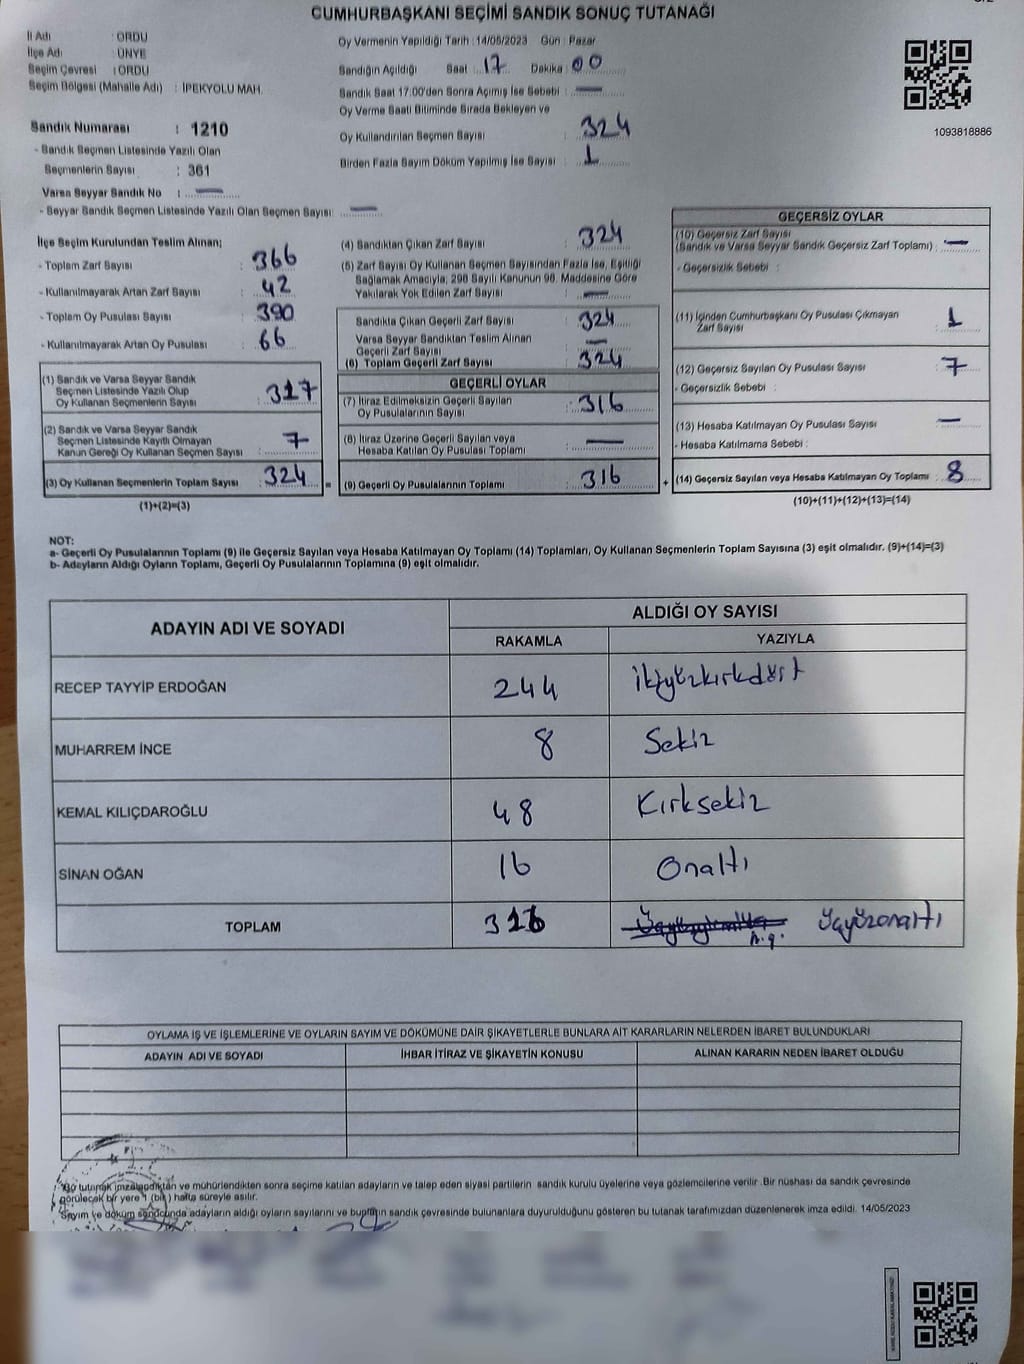 CUMHURBAŞKANI SEÇİMİ SANDIK SONUÇ TUTANAĞI
İl Adı : ORDU
İlçe Adı : ÜNYE
Seçim Çevresi : ORDU
Seçim Bölgesi (Mahalle Adı) : İPEKYOLU MAH.
Oy Vermenin Yapıldığı Tarih :14/05/2023 Gün : Pazar
Sandığın Açıldığı Saat : 17 Dakika : 00
Sandık Saat 17.00'den Sonra Açımış İse Sebebi : —
Oy Verme Saati Bitiminde Sırada Bekleyen ve
Oy Kullandırılan Seçmen Sayısı : 324
Birden Fazla Sayım Döküm Yapılmış İse Sayısı : 1
1093818886
Sandık Numarası : 1210
- Sandık Seçmen Listesinde Yazılı Olan
Seçmenlerin Sayısı : 361
Varsa Seyyar Sandık No : —
- Seyyar Sandık Seçmen Listesinde Yazılı Olan Seçmen Sayısı: —
İlçe Seçim Kurulundan Teslim Alınan;
- Toplam Zarf Sayısı : 366
- Kullanılmayarak Artan Zarf Sayısı : 42
- Toplam Oy Pusulası Sayısı : 390
- Kullanılmayarak Artan Oy Pusulası : 66
(1) Sandık ve Varsa Seyyar Sandık
Seçmen Listesinde Yazılı Olup
Oy Kullanan Seçmenlerin Sayısı : 317
(2) Sandık ve Varsa Seyyar Sandık
Seçmen Listesinde Kayıtlı Olmayan
Kanun Gereği Oy Kullanan Seçmen Sayısı : 7
(3) Oy Kullanan Seçmenlerin Toplam Sayısı : 324
(1)+(2)=(3)
(4) Sandıktan Çıkan Zarf Sayısı : 324
(5) Zarf Sayısı Oy Kullanan Seçmen Sayısından Fazla İse, Eşitliği
Sağlamak Amacıyla; 298 Sayılı Kanunun 98. Maddesine Göre
Yakılarak Yok Edilen Zarf Sayısı : —
Sandıkta Çıkan Geçerli Zarf Sayısı : 324
Varsa Seyyar Sandıktan Teslim Alınan
Geçerli Zarf Sayısı : —
(6) Toplam Geçerli Zarf Sayısı : 324
GEÇERLİ OYLAR
(7) İtiraz Edilmeksizin Geçerli Sayılan
Oy Pusulalarının Sayısı : 316
(8) İtiraz Üzerine Geçerli Sayılan veya
Hesaba Katılan Oy Pusulası Toplamı : —
= (9) Geçerli Oy Pusulalarının Toplamı : 316 +
GEÇERSİZ OYLAR
(10) Geçersiz Zarf Sayısı
(Sandık ve Varsa Seyyar Sandık Geçersiz Zarf Toplamı) : —
- Geçersizlik Sebebi :
(11) İçinden Cumhurbaşkanı Oy Pusulası Çıkmayan
Zarf Sayısı : 1
(12) Geçersiz Sayılan Oy Pusulası Sayısı : 7
- Geçersizlik Sebebi :
(13) Hesaba Katılmayan Oy Pusulası Sayısı : —
- Hesaba Katılmama Sebebi :
(14) Geçersiz Sayılan veya Hesaba Katılmayan Oy Toplamı : 8
(10)+(11)+(12)+(13)=(14)
NOT:
a- Geçerli Oy Pusulalarının Toplamı (9) ile Geçersiz Sayılan veya Hesaba Katılmayan Oy Toplamı (14) Toplamları, Oy Kullanan Seçmenlerin Toplam Sayısına (3) eşit olmalıdır. (9)+(14)=(3)
b- Adayların Aldığı Oyların Toplamı, Geçerli Oy Pusulalarının Toplamına (9) eşit olmalıdır.
ADAYIN ADI VE SOYADI ALDIĞI OY SAYISI
RAKAMLA YAZIYLA
RECEP TAYYİP ERDOĞAN 244 ikiyüzkırkdört
MUHARREM İNCE 8 Sekiz
KEMAL KILIÇDAROĞLU 48 Kırksekiz
SİNAN OĞAN 16 Onaltı
TOPLAM 316 üçyüzonaltı
OYLAMA İŞ VE İŞLEMLERİNE VE OYLARIN SAYIM VE DÖKÜMÜNE DAİR ŞİKAYETLERLE BUNLARA AİT KARARLARIN NELERDEN İBARET BULUNDUKLARI
ADAYIN ADI VE SOYADI İHBAR İTİRAZ VE ŞİKAYETİN KONUSU ALINAN KARARIN NEDEN İBARET OLDUĞU
Bu tutanak imzalandıktan ve mühürlendikten sonra seçime katılan adayların ve talep eden siyasi partilerin sandık kurulu üyelerine veya gözlemcilerine verilir .Bir nüshası da sandık çevresinde
görülecek bir yere 1 (bir) hafta süreyle asılır.
Sayım ve döküm sonucunda adayların aldığı oyların sayılarını ve bunların sandık çevresinde bulunanlara duyurulduğunu gösteren bu tutanak tarafımızdan düzenlenerek imza edildi. 14/05/2023